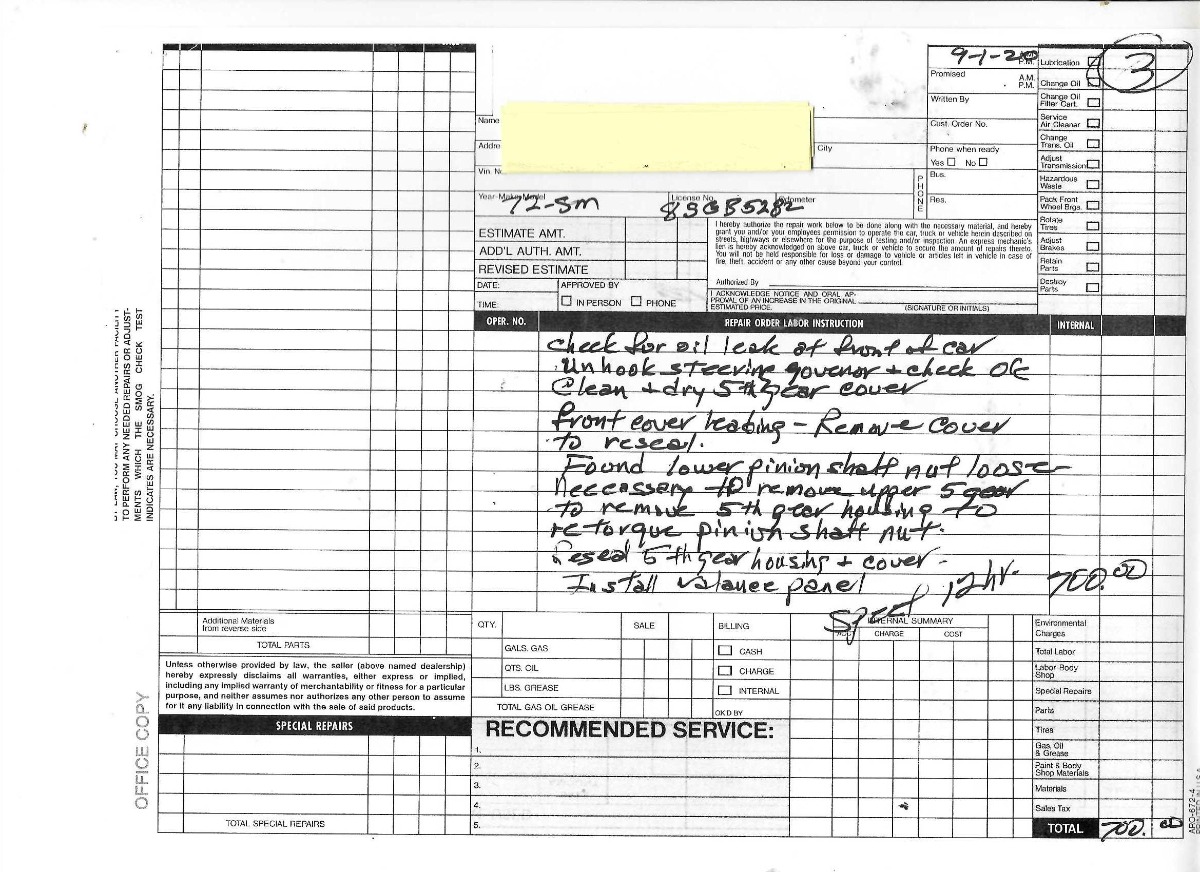 9-1-20
3
P.M.
Promised
A.M.
P.M.
Written By
Name
Cust. Order No.
Addre
City
Phone when ready
Yes No
Vin. N
PHONE
Bus.
Res.
Year-Make-Model
License No.
Odometer
72-SM
83GB5282
Lubrication
Change Oil
Change Oil
Filter Cart.
Service
Air Cleaner
Change
Trans. Oil
Adjust
Transmission
Hazardous
Waste
Pack Front
Wheel Brgs.
Rotate
Tires
Adjust
Brakes
Retain
Parts
Destroy
Parts
ESTIMATE AMT.
ADD'L AUTH. AMT.
REVISED ESTIMATE
DATE:
APPROVED BY
TIME:
IN PERSON PHONE
I hereby authorize the repair work below to be done along with the necessary material, and hereby
grant you and/or your employees permission to operate the car, truck or vehicle herein described on
streets, highways or elsewhere for the purpose of testing and/or inspection. An express mechanic's
lien is hereby acknowledged on above car, truck or vehicle to secure the amount of repairs thereto.
You will not be held responsible for loss or damage to vehicle or articles left in vehicle in case of
fire, theft, accident or any other cause beyond your control.
Authorized By
I ACKNOWLEDGE NOTICE AND ORAL AP-
PROVAL OF AN INCREASE IN THE ORIGINAL
ESTIMATED PRICE.
(SIGNATURE OR INITIALS)
OPER. NO.
REPAIR ORDER LABOR INSTRUCTION
INTERNAL
check for oil leak at front of car
Unhook steering govenor + check OK
Clean + dry 5th gear cover
front cover leaking - Remove Cover
to reseal.
Found lower pinion shaft nut loose
neccessary to remove upper 5 gear
to remove 5th gear housing to
re-torque pinion shaft nut.
Reseal 5th gear housing + cover -
Install valance panel
12 hr. 700.00
TO PERFORM ANY NEEDED REPAIRS OR ADJUST-
MENTS WHICH THE SMOG CHECK TEST
INDICATES ARE NECESSARY.
OFFICE COPY
Additional Materials
from reverse side
TOTAL PARTS
Unless otherwise provided by law, the seller (above named dealership)
hereby expressly disclaims all warranties, either express or implied,
including any implied warranty of merchantability or fitness for a particular
purpose, and neither assumes nor authorizes any other person to assume
for it any liability in connection with the sale of said products.
SPECIAL REPAIRS
TOTAL SPECIAL REPAIRS
QTY.
SALE
BILLING
GALS. GAS
QTS. OIL
LBS. GREASE
TOTAL GAS OIL GREASE
CASH
CHARGE
INTERNAL
OK'D BY
INTERNAL SUMMARY
CHARGE
COST
RECOMMENDED SERVICE:
1.
2.
3.
4.
5.
Environmental
Charges
Total Labor
Labor-Body
Shop
Special Repairs
Parts
Tires
Gas, Oil
& Grease
Paint & Body
Shop Materials
Materials
Sales Tax
TOTAL
700.00
APO-672-4